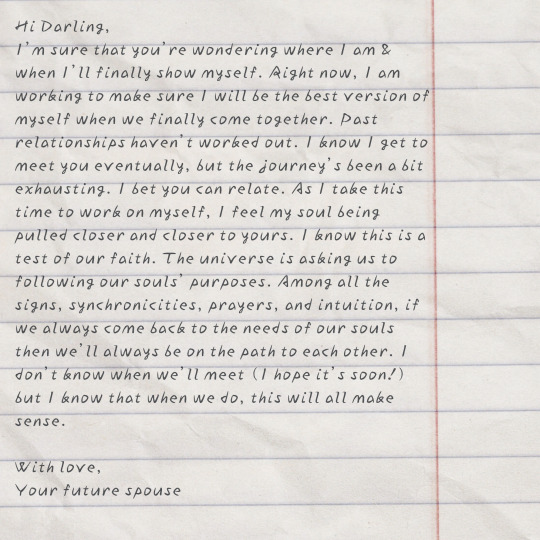 Hi Darling,
I'm sure that you're wondering where I am &
when I'll finally show myself. Right now, I am
working to make sure I will be the best version of
myself when we finally come together. Past
relationships haven't worked out. I know I get to
meet you eventually, but the journey's been a bit
exhausting. I bet you can relate. As I take this
time to work on myself, I feel my soul being
pulled closer and closer to yours. I know this is a
test of our faith. The universe is asking us to
following our souls' purposes. Among all the
signs, synchronicities, prayers, and intuition, if
we always come back to the needs of our souls
then we'll always be on the path to each other. I
don't know when we'll meet (I hope it's soon!)
but I know that when we do, this will all make
sense.

With love,
Your future spouse